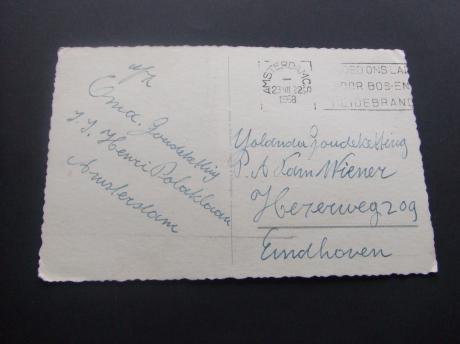 afz
Oma. Zoudekatting
J. J. Henri Polaklaan
Amsterdam
AMSTERDAM-C.S.
1958
VOOR BOS-EN
HEIDEBRAND
Yolanda Zoudeketting
P. A Kam Wiener
Hezerweg 209
Eindhoven